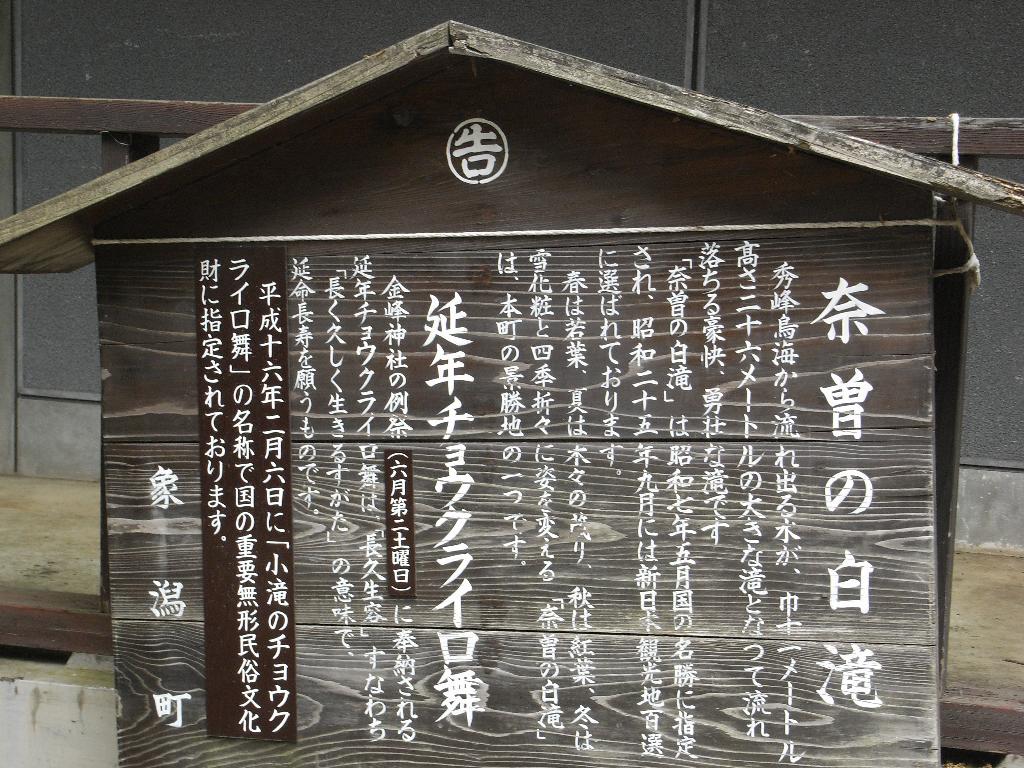 告
奈曽の白滝
秀峰鳥海から流れ出る水が、巾十一メートル
高さ二十六メートルの大きな滝となって流れ
落ちる豪快、勇壮な滝です
「奈曽の白滝」は昭和七年五月国の名勝に指定
され、昭和二十五年九月には新日本観光地百選
に選ばれております。
春は若葉、夏は木々の茂り、秋は紅葉、冬は
雪化粧と四季折々に姿を変える「奈曽の白滝」
は、本町の景勝地の一つです。
延年チョウクライロ舞
金峰神社の例祭(六月第二土曜日)に奉納される
延年チョウクライロ舞は「長久生容」すなわち
「長く久しく生きるすがた」の意味で、
延命長寿を願うものです。
平成十六年二月六日に「小滝のチョウク
ライロ舞」の名称で国の重要無形民俗文化
財に指定されております。
象潟町